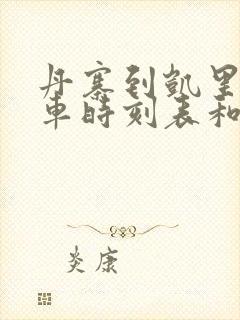 丹寨到凯里
车时刻表和
炎康